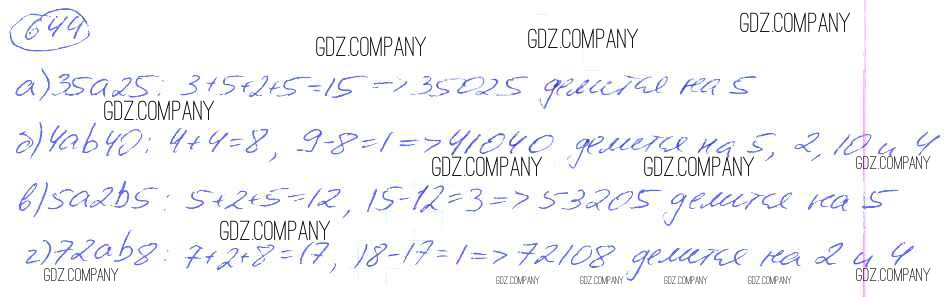 644
GDZ.COMPANY GDZ.COMPANY GDZ.COMPANY
а) 35a25: 3+5+2+5=15 => 35025 делится на 5
GDZ.COMPANY
б) 4ab40: 4+4=8, 9-8=1 => 41040 делится на 5, 2, 10 и 4
GDZ.COMPANY GDZ.COMPANY GDZ.COMPANY
в) 5a2b5: 5+2+5=12, 15-12=3 => 53205 делится на 5
GDZ.COMPANY
г) 72ab8: 7+2+8=17, 18-17=1 => 72108 делится на 2 и 4
GDZ.COMPANY GDZ.COMPANY GDZ.COMPANY GDZ.COMPANY GDZ.COMPANY GDZ.COMPANY